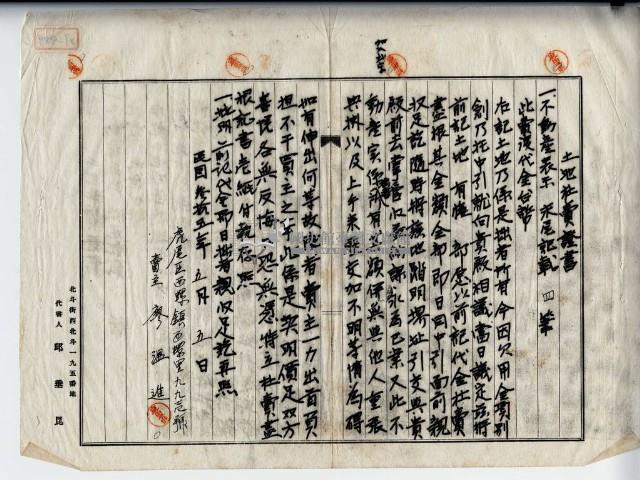 土地杜賣證書
一、不動產表示 末尾記載 四筆
此賣渡代金台幣
右記土地乃係是拙者所有今因欠用金項別
創乃托中引就向貴殿相議當日議定茲將
前記土地 有權一部愿以前記代金杜賣
盡根其金額全部即日同中引面前親
收足訖隨時將該地踏明堺址引交與貴
殿前去掌管收益納課永為己業又此不
動產實係我有 額保無與他人重張
典掛以及上手來歷交加不明等情為碍
如有伸出何等故障者賣主一力出首頂
担不干買主之事此係是契明價足双方
喜悅各無反悔恐無憑特立杜賣盡
根証書壱紙付執存炤
一批明前記代金即日拙者親收足訖再炤
民國參拾五年五月五日
虎尾區西螺鎮西螺里九九壱號
賣主 廖溫進
北斗街西北斗一九五番地
代書人 邱垂昆